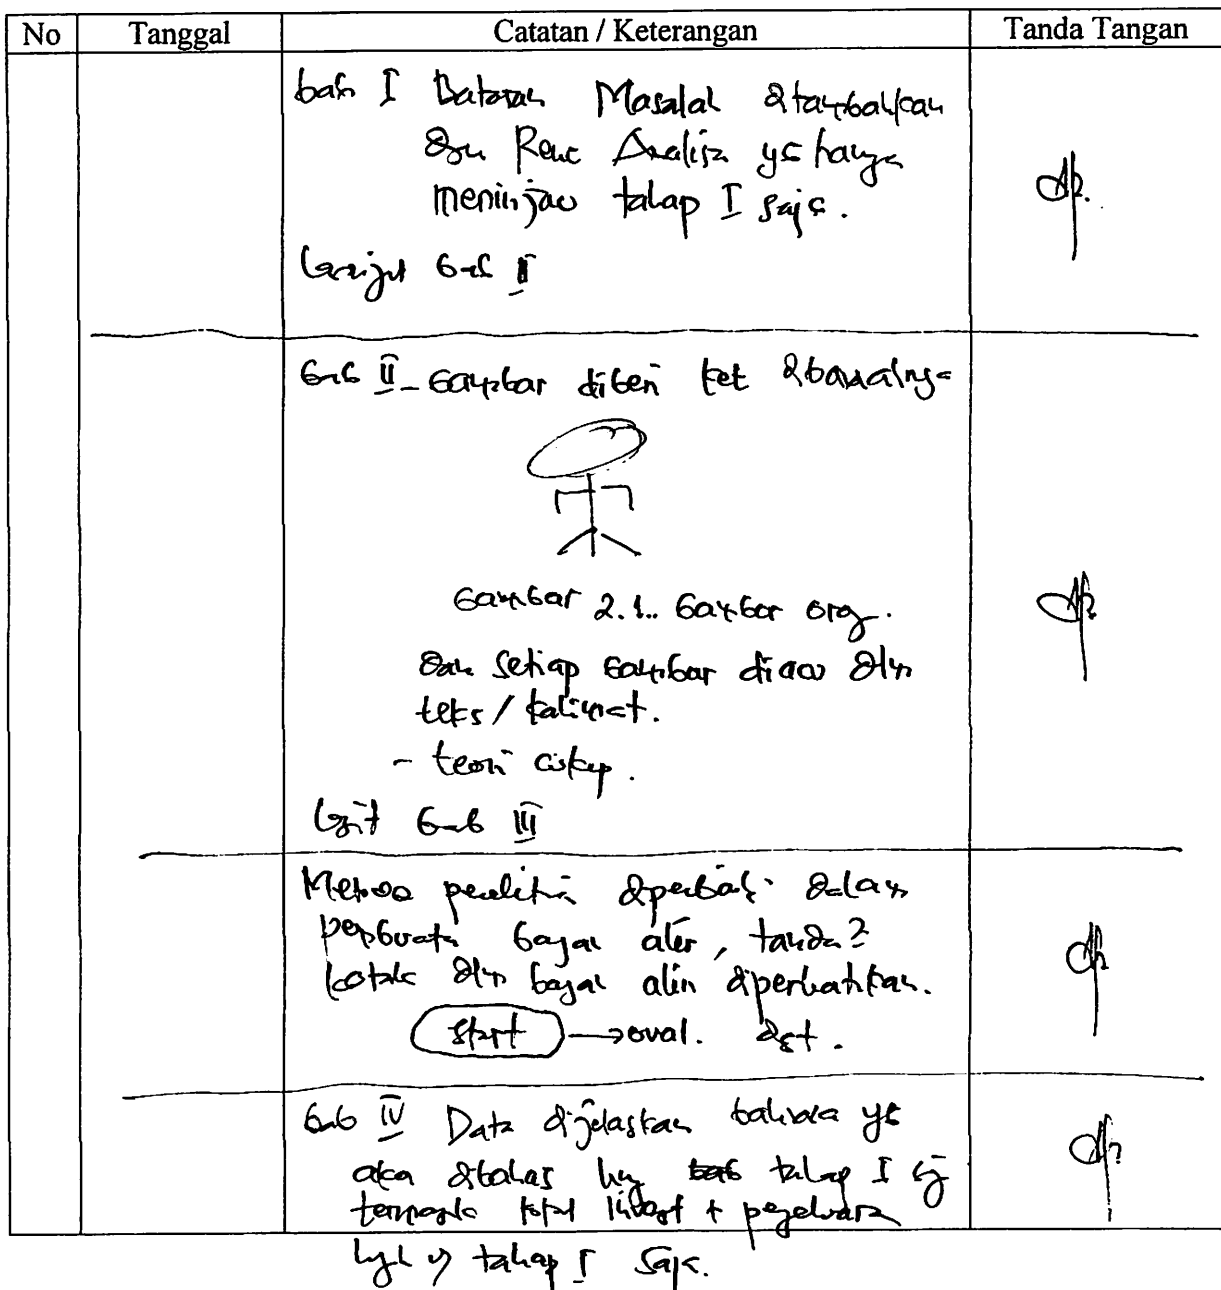 No Tanggal Catatan / Keterangan Tanda Tangan
bab I Batasan Masalah ditambahkan
dgn Renc Analisa yg hanya
meninjau tahap I saja.
Lanjut bab II
bab II - Gambar diberi ket dibawahnya
Gambar 2.1.. Gambar org.
dan setiap gambar diacu dlm
teks / kalimat.
- teori cukup.
Lanjt bab III
Metode penelitian diperbaiki dalam
pembuatan bagan alir, tanda2
kotak dlm bagan alir diperhatikan.
start → oval. dst.
bab IV Data dijelaskan bahwa yg
akan dibahas hny tahap I sj
termasuk total + pengeluaran
tahap I saja.